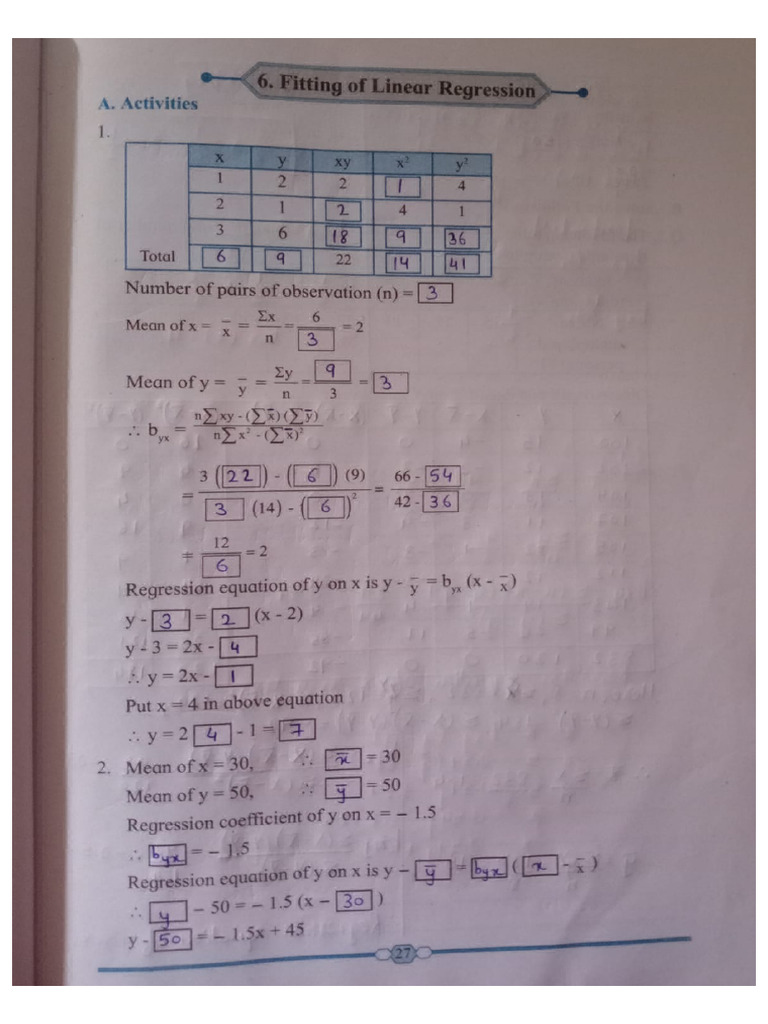 6. Fitting of Linear Regression
A. Activities
1.
x y xy x² y²
1 2 2 1 4
2 1 2 4 1
3 6 18 9 36
Total 6 9 22 14 41
Number of pairs of observation (n) = 3
Mean of x = x̅ = Σx/n = 6/3 = 2
Mean of y = y̅ = Σy/n = 9/3 = 3
∴ b_yx = (n∑xy - (∑x̅)(∑y̅))/(n∑x² - (∑x̅)²)
= (3 (22) - (6) (9))/(3 (14) - (6)²) = (66 - 54)/(42 - 36)
= 12/6 = 2
Regression equation of y on x is y - y̅ = b_yx (x - x̅)
y - 3 = 2 (x - 2)
y - 3 = 2x - 4
∴ y = 2x - 1
Put x = 4 in above equation
∴ y = 2 4 - 1 = 7
2. Mean of x = 30, ∴ x̅ = 30
Mean of y = 50, ∴ y̅ = 50
Regression coefficient of y on x = – 1.5
∴ b_yx = – 1.5
Regression equation of y on x is y – y̅ = b_yx (x - x̅)
∴ y – 50 = – 1.5 (x – 30)
y - 50 = – 1.5x + 45
27